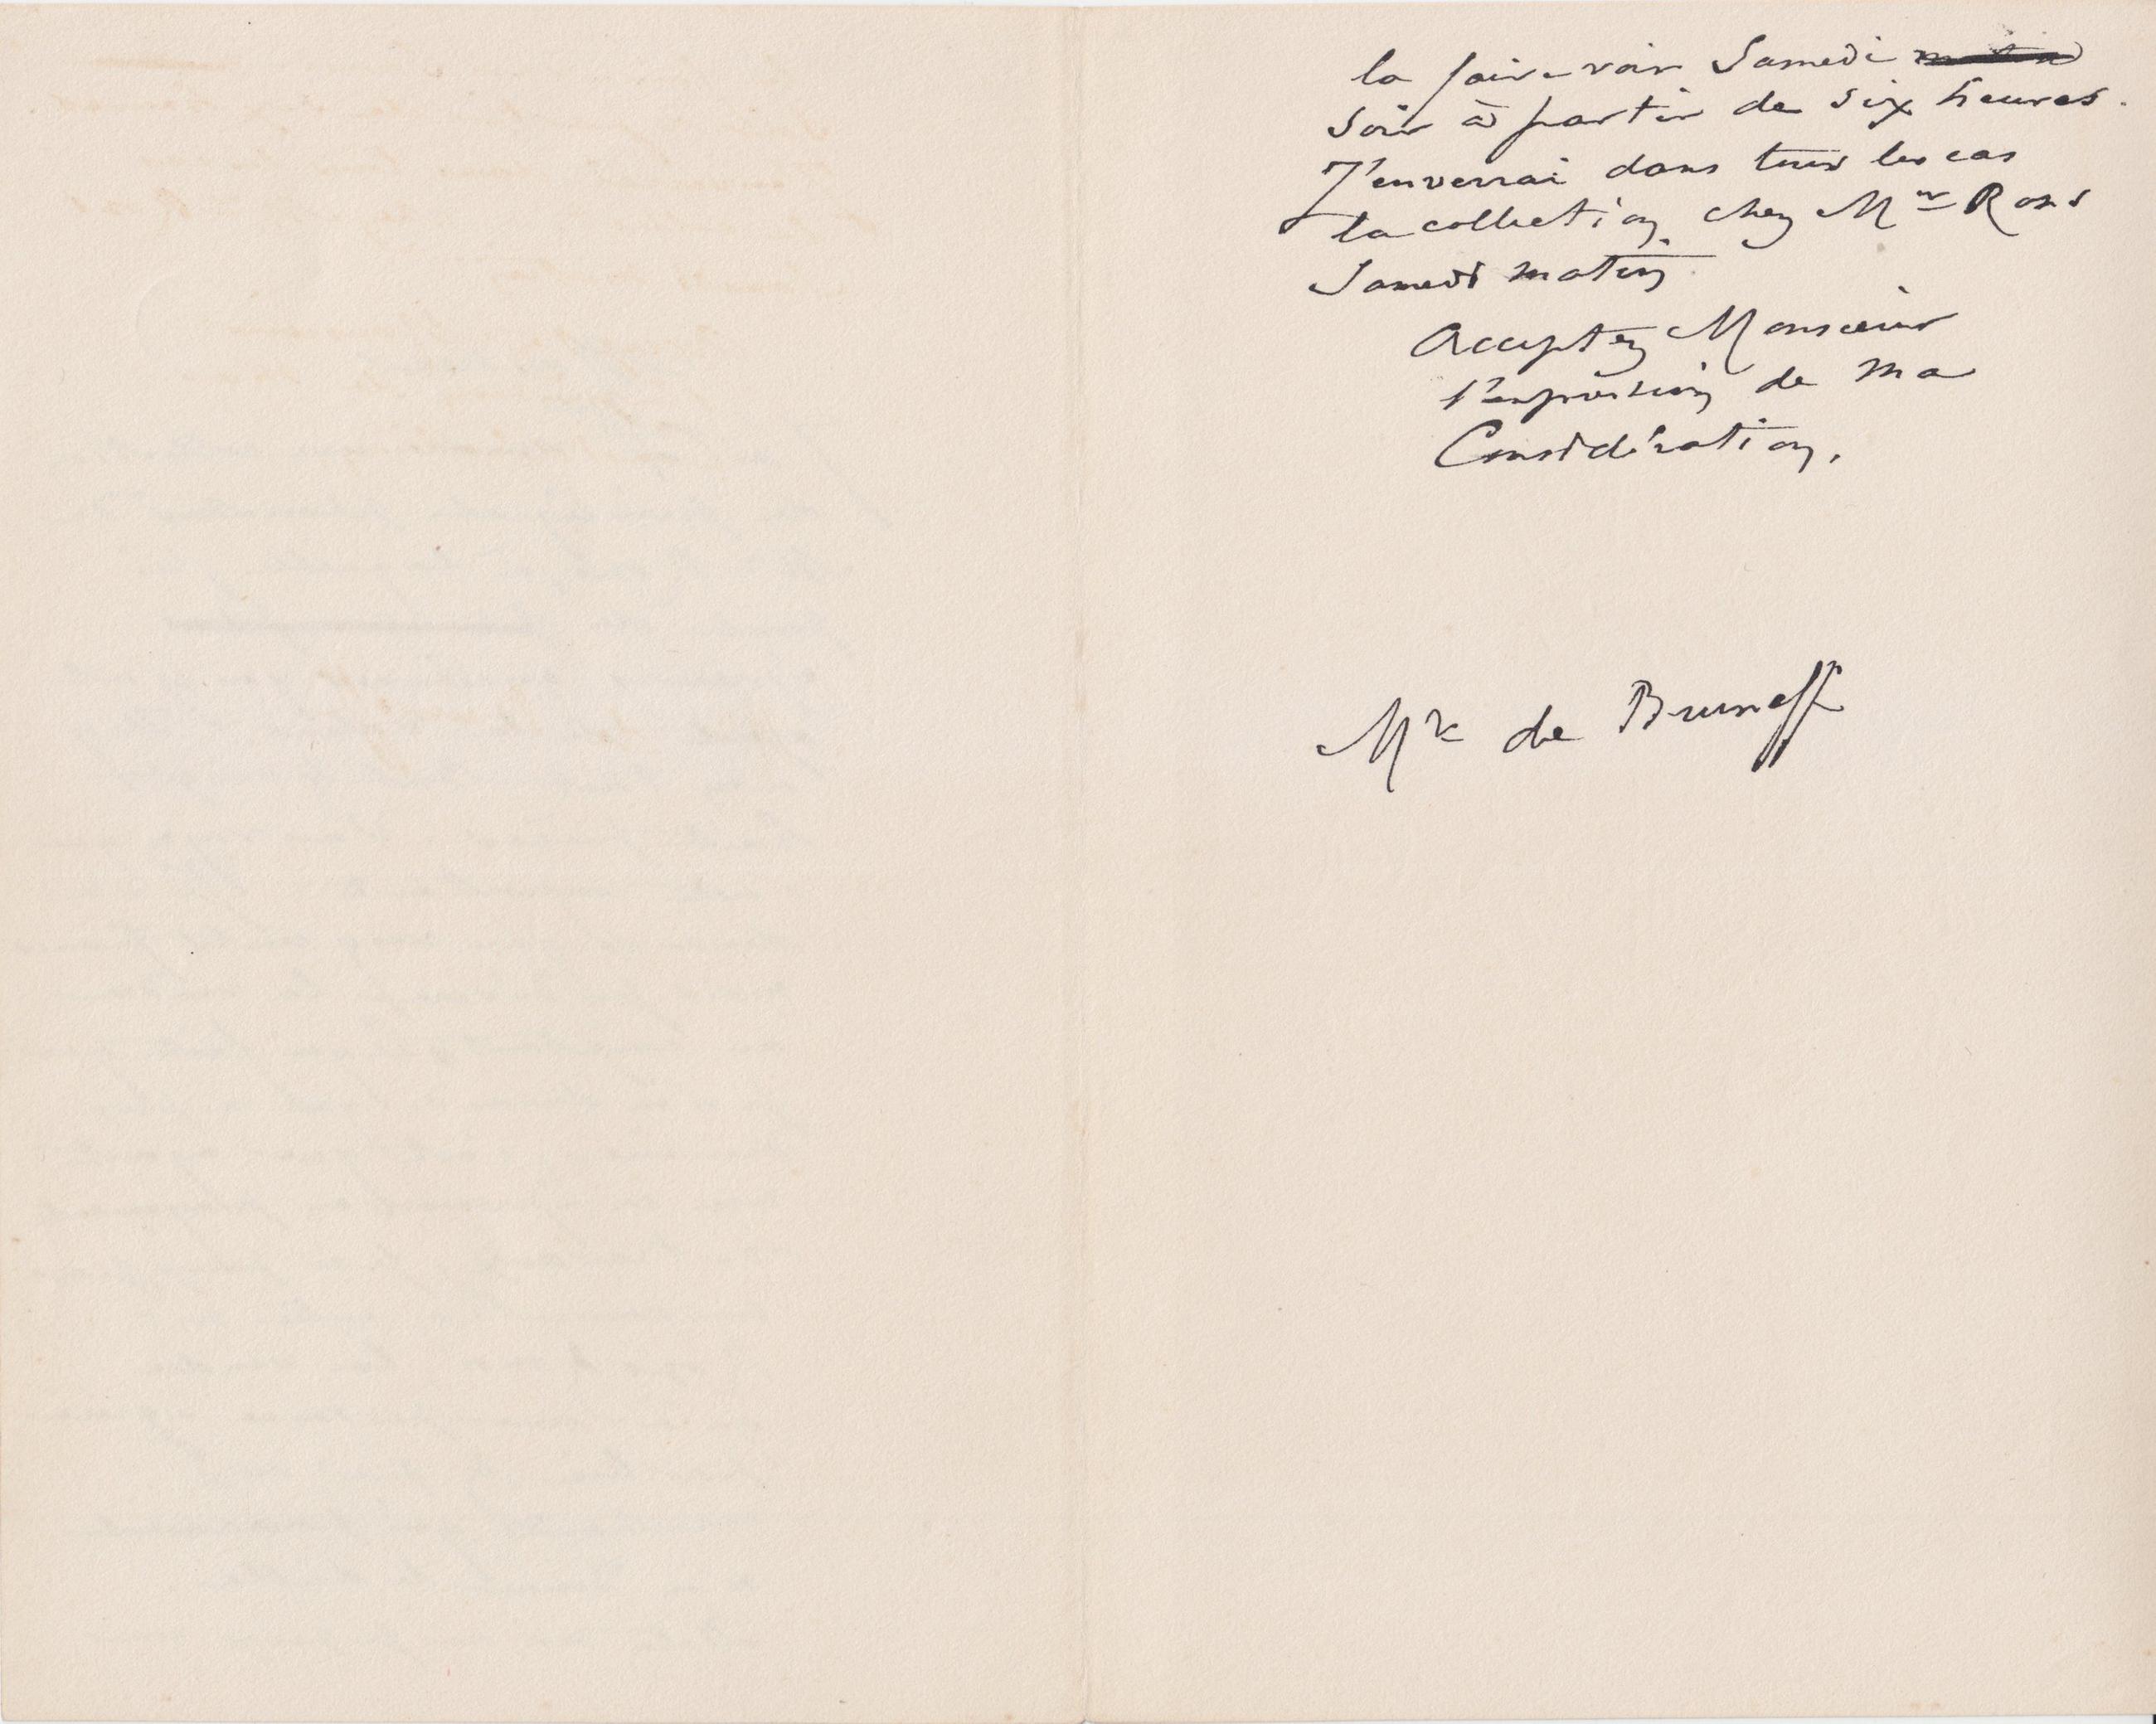 la faire voir Samedi
soir à partir de six heures.
J'enverrai dans tous les cas
la collection chez Mr Rons
Samedi matin.
Acceptez Monsieur
l'expression de ma
Considération.
de Bruneff